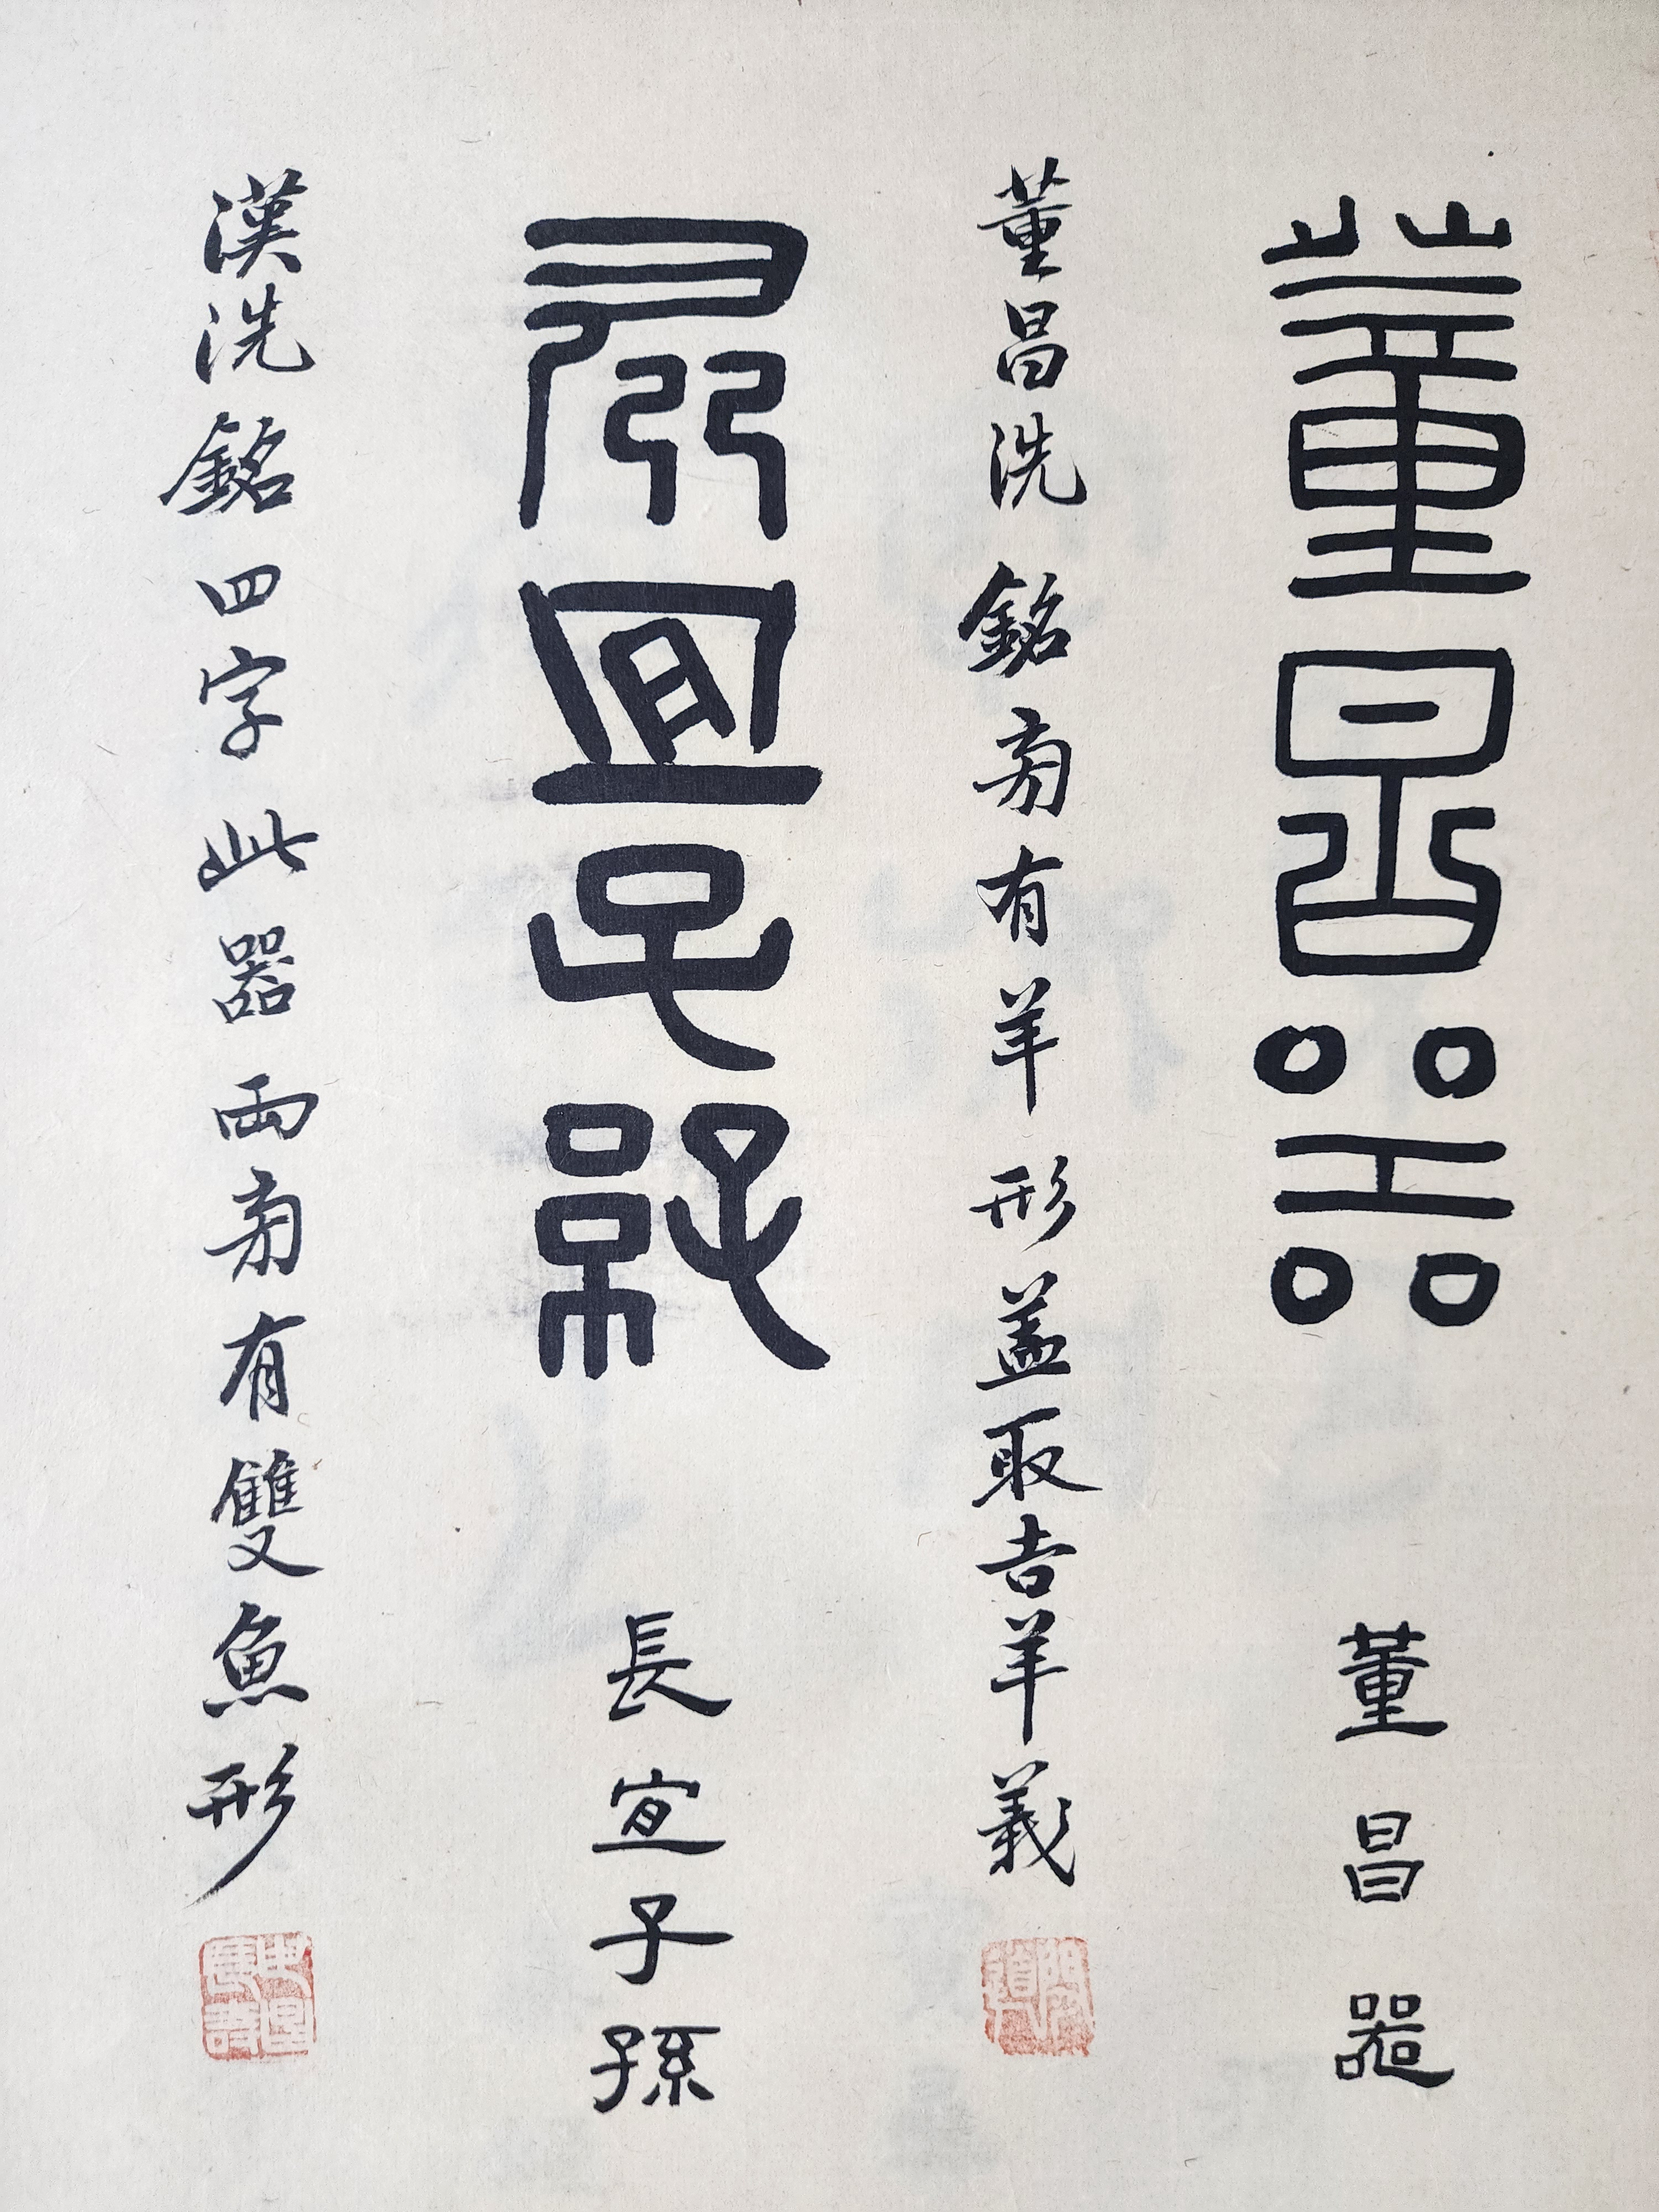 董昌器
董昌器
董昌洗銘旁有羊形蓋取吉羊義
長宜子孫
長宜子孫
漢洗銘四字此器兩旁有雙魚形